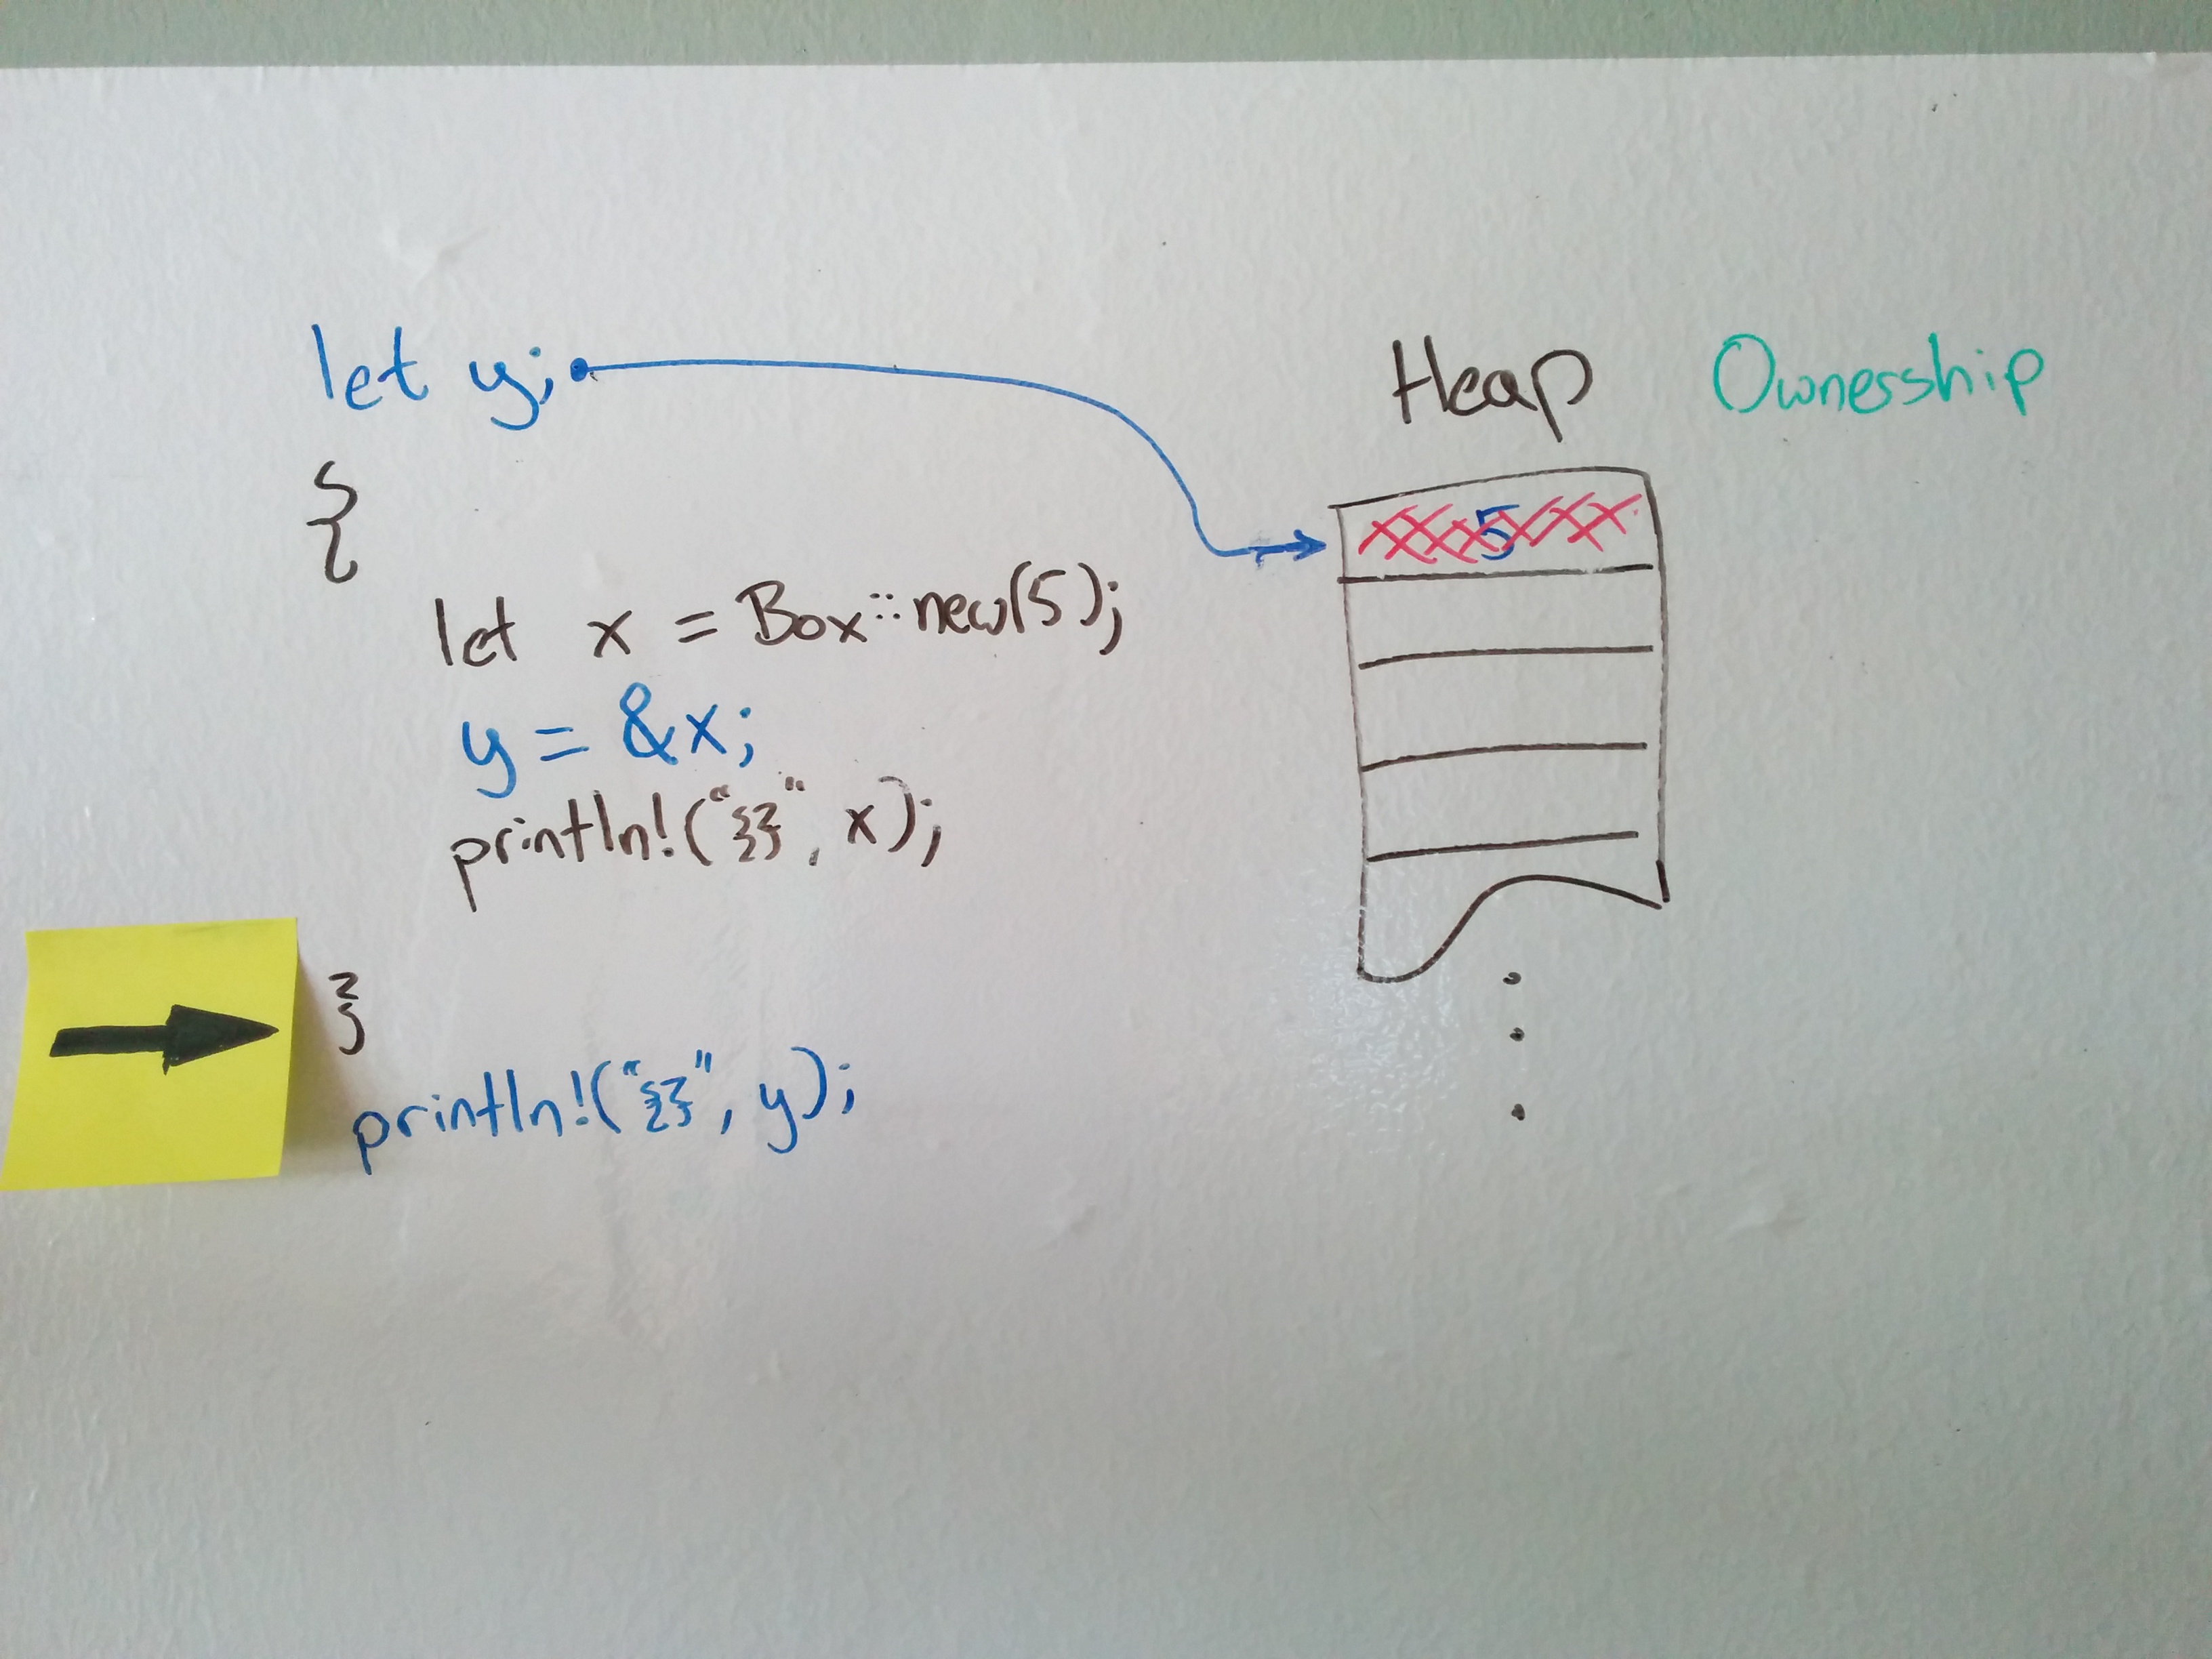 let y;
{
let x = Box::new(5);
y = &x;
println!("{}", x);
}
println!("{}", y);
Heap
5
Ownership